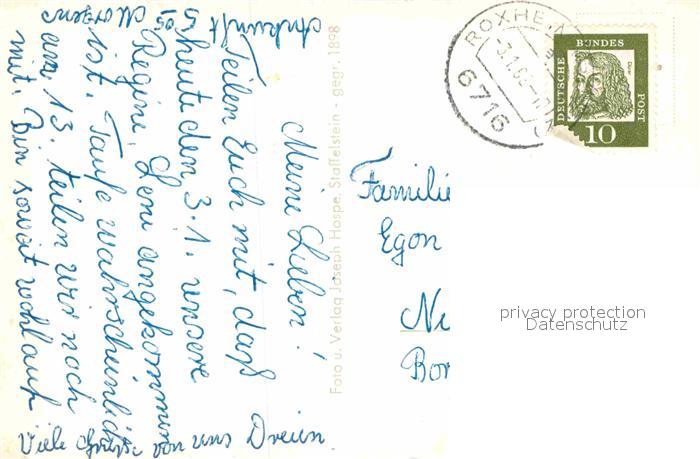 Meine Lieben!
Teilen Euch mit, daß
heute den 3.1. unsere
Regine, Leni angekommen
ist. Taufe wahrscheinlich
am 13. teilen wir noch
mit. Bin soweit wohlauf
Viele Grüsse von uns Dreien.
Ankunft
5 05
Morgens
Foto u. Verlag Joseph Hospe, Staffelstein - gegr. 1898
Familie
Egon
Ne
Bor
ROXHEIM
6716
DEUTSCHE
BUNDES
POST
Dürer
10
privacy protection
Datenschutz